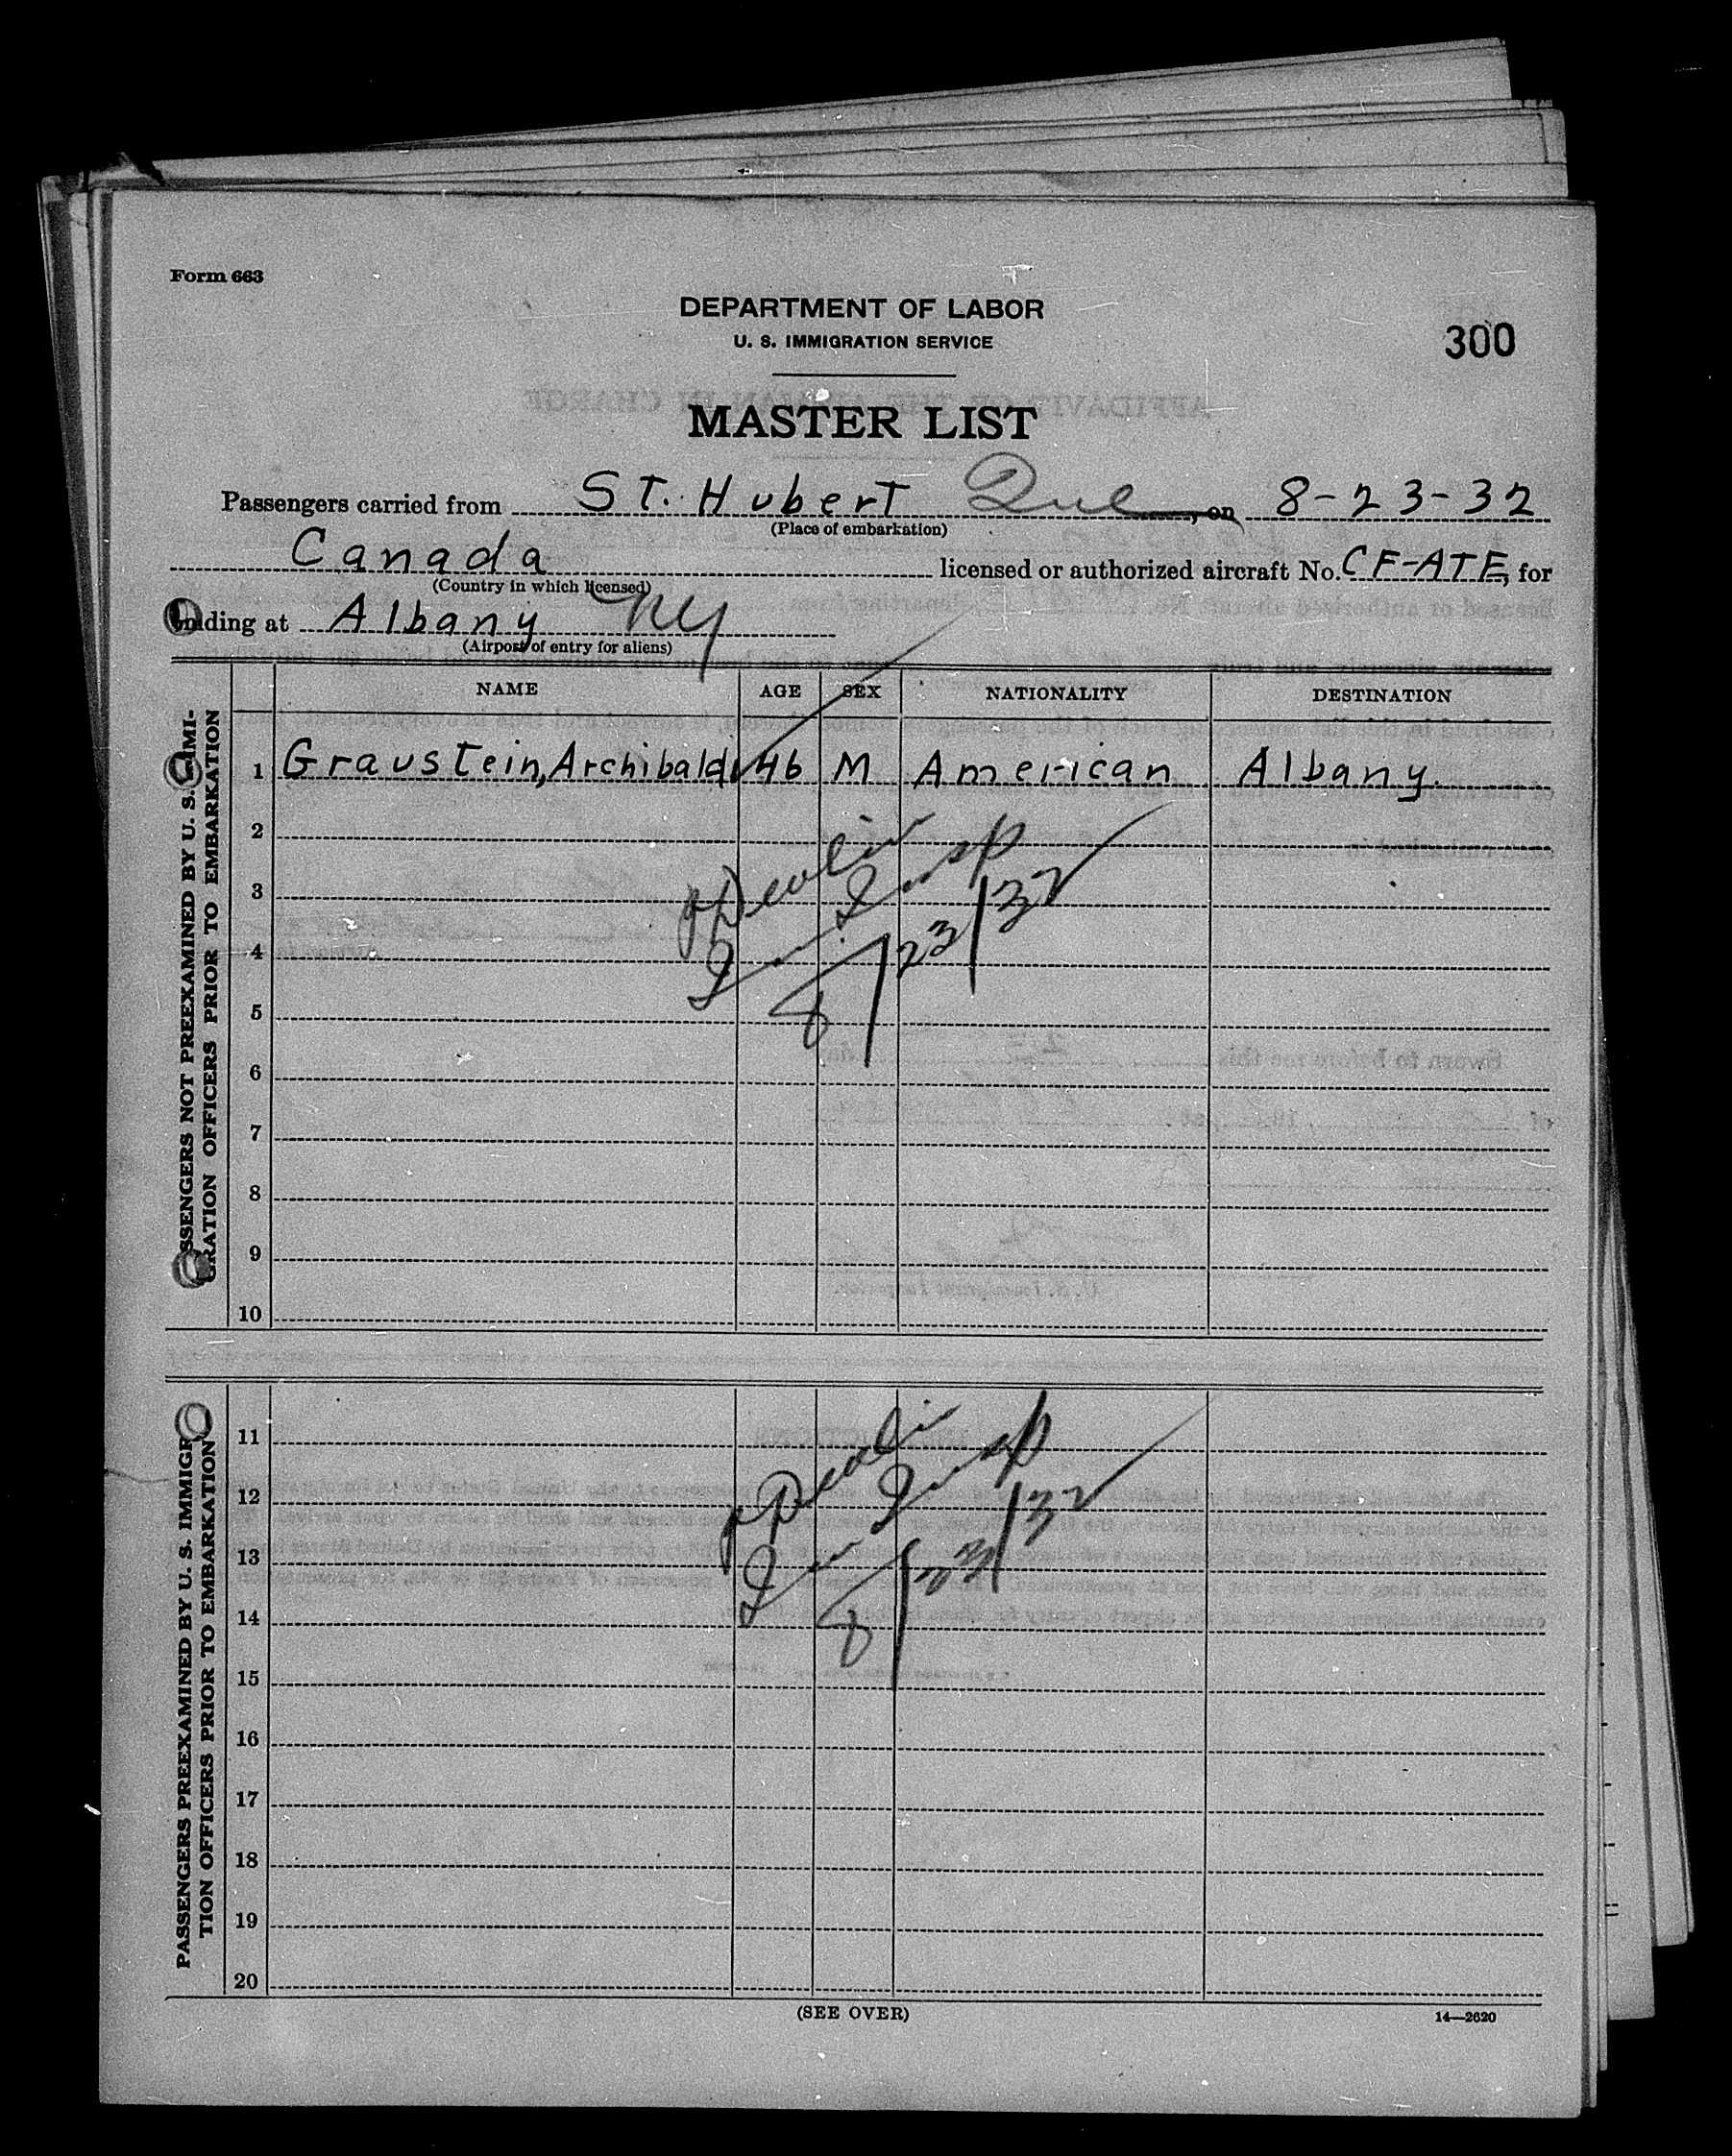 Form 663
DEPARTMENT OF LABOR
U. S. IMMIGRATION SERVICE
300
MASTER LIST
Passengers carried from St. Hubert Que, on 8-23-32
(Place of embarkation)
Canada licensed or authorized aircraft No. CF-ATF, for
(Country in which licensed)
landing at Albany NY
(Airport of entry for aliens)
NAME AGE SEX NATIONALITY DESTINATION
PASSENGERS NOT PREEXAMINED BY U. S. IMMI-
GRATION OFFICERS PRIOR TO EMBARKATION
1 Graustein, Archibald 46 M American Albany.
2
3
4
5
6
7
8
9
10
Insp
8/23/32
PASSENGERS PREEXAMINED BY U. S. IMMIGRA-
TION OFFICERS PRIOR TO EMBARKATION
11
12
13
14
15
16
17
18
19
20
Insp
8/23/32
(SEE OVER)
14—2620